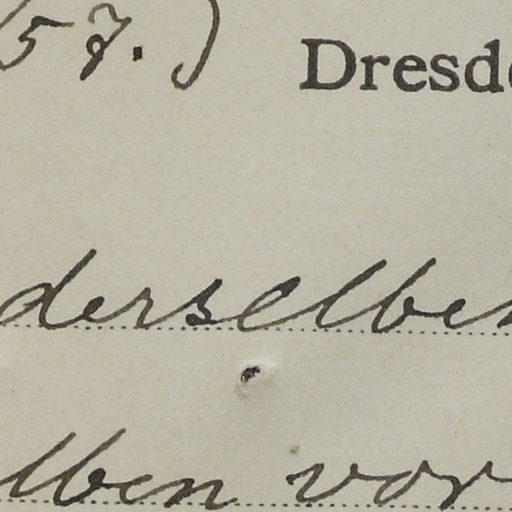 57.) Dresde
derselben
lben vor